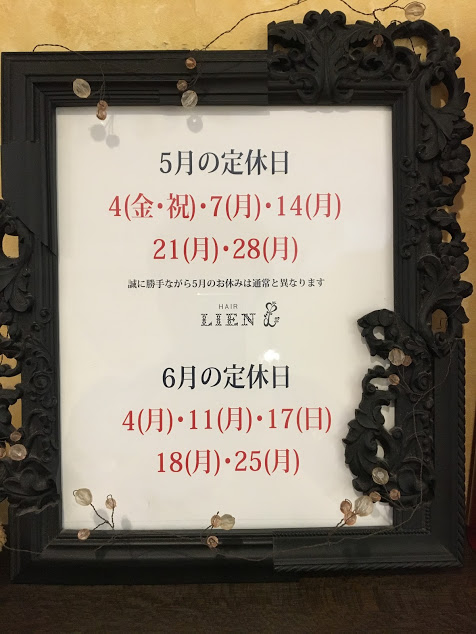 5月の定休日
4(金・祝)・7(月)・14(月)
21(月)・28(月)
誠に勝手ながら5月のお休みは通常と異なります
HAIR
LIEN
6月の定休日
4(月)・11(月)・17(日)
18(月)・25(月)